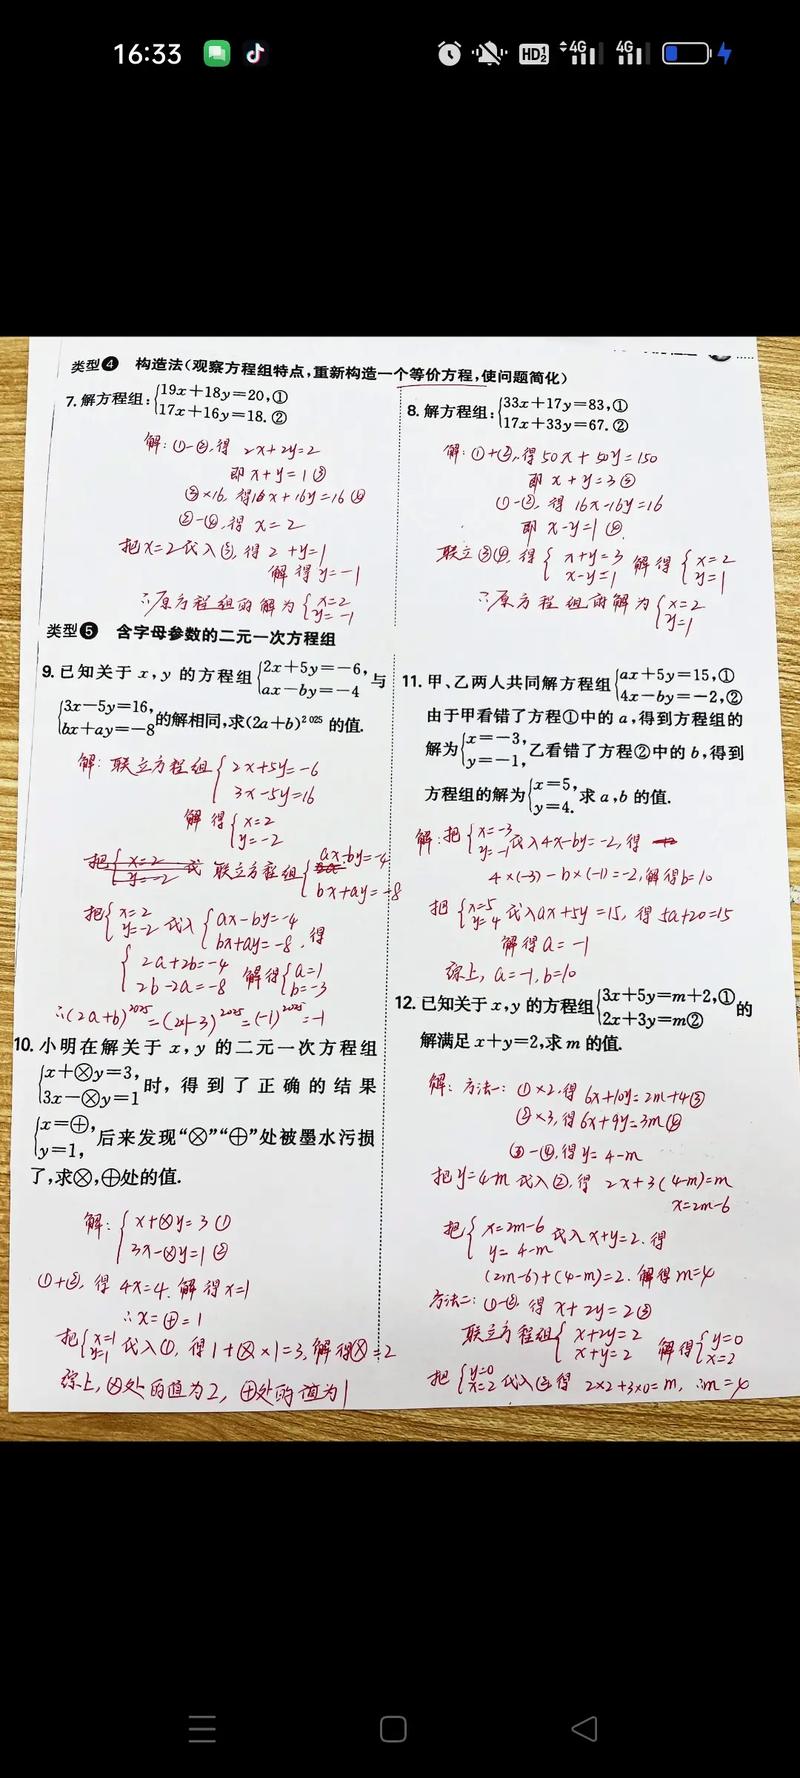 16:33
HD 1 2 4G 4G
类型❹ 构造法(观察方程组特点,重新构造一个等价方程,使问题简化)
7. 解方程组:{19x+18y=20,①
17x+16y=18.②
解:①-②,得 2x+2y=2
即 x+y=1③
③×16,得16x+16y=16④
②-④,得 x=2
把x=2代入③,得 2+y=1
解得y=-1
∴原方程组的解为{x=2
y=-1
8. 解方程组:{33x+17y=83,①
17x+33y=67.②
解:①+②,得50x+50y=150
即 x+y=3③
①-②,得 16x-16y=16
即 x-y=1④.
联立③④,得{x+y=3 解得{x=2
x-y=1 y=1
∴原方程组的解为{x=2
y=1
类型❺ 含字母参数的二元一次方程组
9. 已知关于 x,y 的方程组{2x+5y=-6,与
ax-by=-4
{3x-5y=16,的解相同,求(2a+b)²⁰²⁵的值.
bx+ay=-8
解:联立方程组{2x+5y=-6
3x-5y=16
解得{x=2
y=-2
把{x=2 代 联立方程组{ax-by=-4
y=-2 bx+ay=-8
把{x=2 代入{ax-by=-4
y=-2 bx+ay=-8,得
{2a+2b=-4 解得{a=1
2b-2a=-8 b=-3
∴(2a+b)²⁰²⁵=(2-3)²⁰²⁵=(-1)²⁰²⁵=-1
10. 小明在解关于 x,y 的二元一次方程组
{x+⊗y=3,时,得到了正确的结果
3x-⊗y=1
{x=⊕,后来发现“⊗”“⊕”处被墨水污损
y=1,
了,求⊗,⊕处的值.
解:{x+⊗y=3①
3x-⊗y=1②
①+②,得 4x=4.解得x=1
∴x=⊕=1
把{x=1 代入①,得1+⊗×1=3,解得⊗=2
y=1
综上,⊗处的值为2,⊕处的值为1
11. 甲、乙两人共同解方程组{ax+5y=15,①
4x-by=-2,②
由于甲看错了方程①中的 a,得到方程组的
解为{x=-3,乙看错了方程②中的 b,得到
y=-1,
方程组的解为{x=5,求 a,b 的值.
y=4.
解:把{x=-3 代入4x-by=-2,得
y=-1
4×(-3)-b×(-1)=-2,解得b=10
把{x=5 代入ax+5y=15,得 5a+20=15
y=4
解得a=-1
综上,a=-1,b=10
12. 已知关于 x,y 的方程组{3x+5y=m+2,①的
2x+3y=m②
解满足 x+y=2,求 m 的值.
解:方法一:①×2,得 6x+10y=2m+4③
②×3,得6x+9y=3m④
③-④,得y=4-m
把y=4-m代入②,得 2x+3(4-m)=m
x=2m-6
把{x=2m-6 代入x+y=2.得
y=4-m
(2m-6)+(4-m)=2.解得m=4
方法二:①-②,得 x+2y=2③
联立方程组{x+2y=2 解得{y=0
x+y=2 x=2
把{y=0 代入②得 2×2+3×0=m,∴m=4
x=2